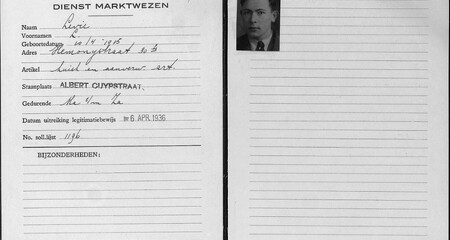 DIENST MARKTWEZEN
Naam Levie
Voornamen L.
Geboortedatum 10/4 - 1915
Adres Hemonystraat 20 b
Artikel huish en aanverw. art.
Staanplaats ALBERT CUYPSTRAAT.
Gedurende Ma t/m Za
Datum uitreiking legitimatiebewijs 6 APR. 1936
No. soll.lijst 1196
BIJZONDERHEDEN: